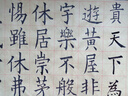 貴天下
遊黃屋非
字樂不般
休居崇茅
惕雖休弗